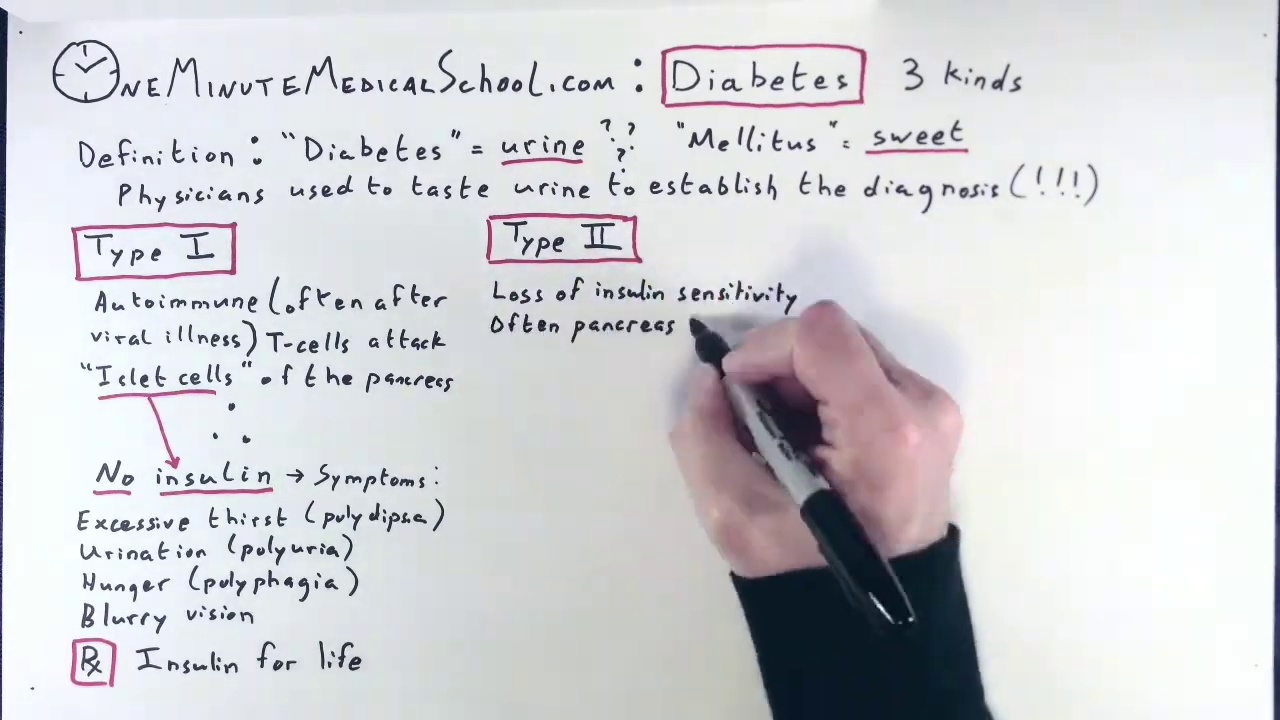 ONEMINUTEMEDICALSCHOOL.COM: Diabetes 3 kinds
Definition: "Diabetes" = urine ??? "Mellitus" = sweet
Physicians used to taste urine to establish the diagnosis (!!!)
Type I
Autoimmune (often after
viral illness) T-cells attack
"Islet cells" of the pancreas
∴
No insulin → Symptoms:
Excessive thirst (polydipsa)
Urination (polyuria)
Hunger (polyphagia)
Blurry vision
Rx Insulin for life
Type II
Loss of insulin sensitivity
Often pancreas